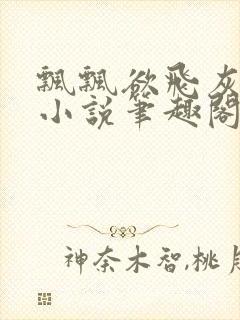 飄飄欲飛灰
小說筆趣閣
神奈木智,桃月